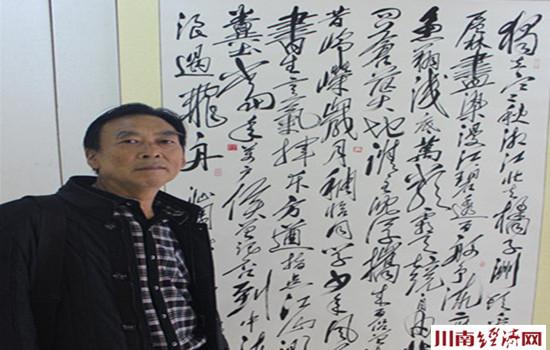 獨立寒秋湘江北去橘子洲頭
層林盡染漫江碧透百舸爭流
魚翔淺底萬類霜天競自由
問蒼茫大地誰主沉浮攜來百侶
昔崢嶸歲月稠恰同學少年風
書生意氣揮斥方遒指點江山激
糞土當年萬戶侯曾記否到中流
浪遏飛舟
川南经济网